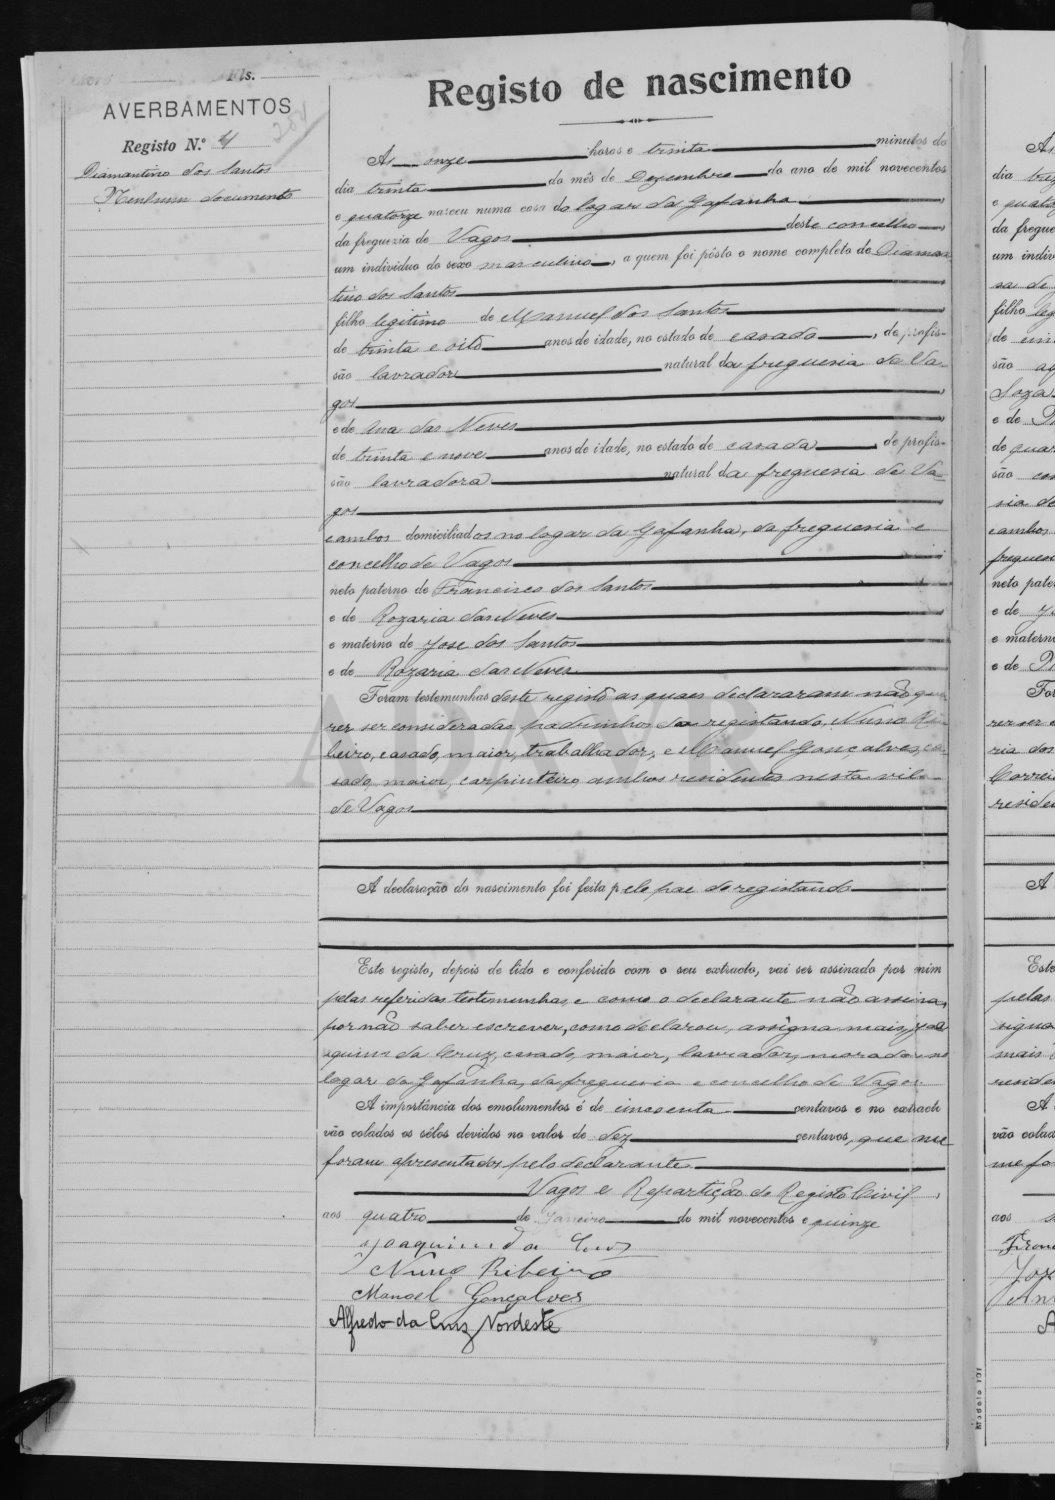 Fls.
AVERBAMENTOS
Registo N.º 4
284
Diamantino dos Santos
Nenhum documento
Registo de nascimento
Às onze horas e trinta minutos do
dia trinta do mês de Dezembro do ano de mil novecentos
e quatorze nasceu numa casa do logar da Gafanha
da freguezia de Vagos deste concelho
um individuo do sexo masculino, a quem foi pôsto o nome completo de Diaman
tino dos Santos
filho legitimo de Manuel dos Santos
de trinta e oito anos de idade, no estado de casado, de profis-
são lavrador natural da freguesia de Va-
gos
e de Ana das Neves
de trinta e nove anos de idade, no estado de casada, de profis-
são lavradora natural da freguesia de Va-
gos
e ambos domiciliados no logar da Gafanha, da freguesia e
concelho de Vagos
neto paterno de Francisco dos Santos
e de Rozaria das Neves
e materno de Jose dos Santos
e de Rozaria das Neves
Foram testemunhas deste registo as quaes declararam não que
rer ser consideradas padrinhos do registando, Nuno Ri
beiro, casado, maior, trabalhador, e Manuel Gonçalves, ca-
sado, maior, carpinteiro, ambos residentes nesta vila
de Vagos
A declaração do nascimento foi feita pelo pae do registando
Este registo, depois de lido e conferido com o seu extracto, vai ser assinado por mim
pelas referidas testemunhas, e como o declarante não assina,
por não saber escrever, como declarou, assigna mais, Joa
quim da Cruz, casado, maior, lavrador, morador no
logar da Gafanha, da freguesia e concelho de Vagos
A importância dos emolumentos é de cincoenta centavos e no extracto
vão colados os sêlos devidos no valor de dez centavos, que me
foram apresentados pelo declarante
Vagos e Repartição do Registo Civil,
aos quatro de Janeiro de mil novecentos e quinze
Joaquim da Cruz
Nuno Ribeiro
Manoel Gonçalves
Alfredo da Cruz Nordeste
Modelo 101